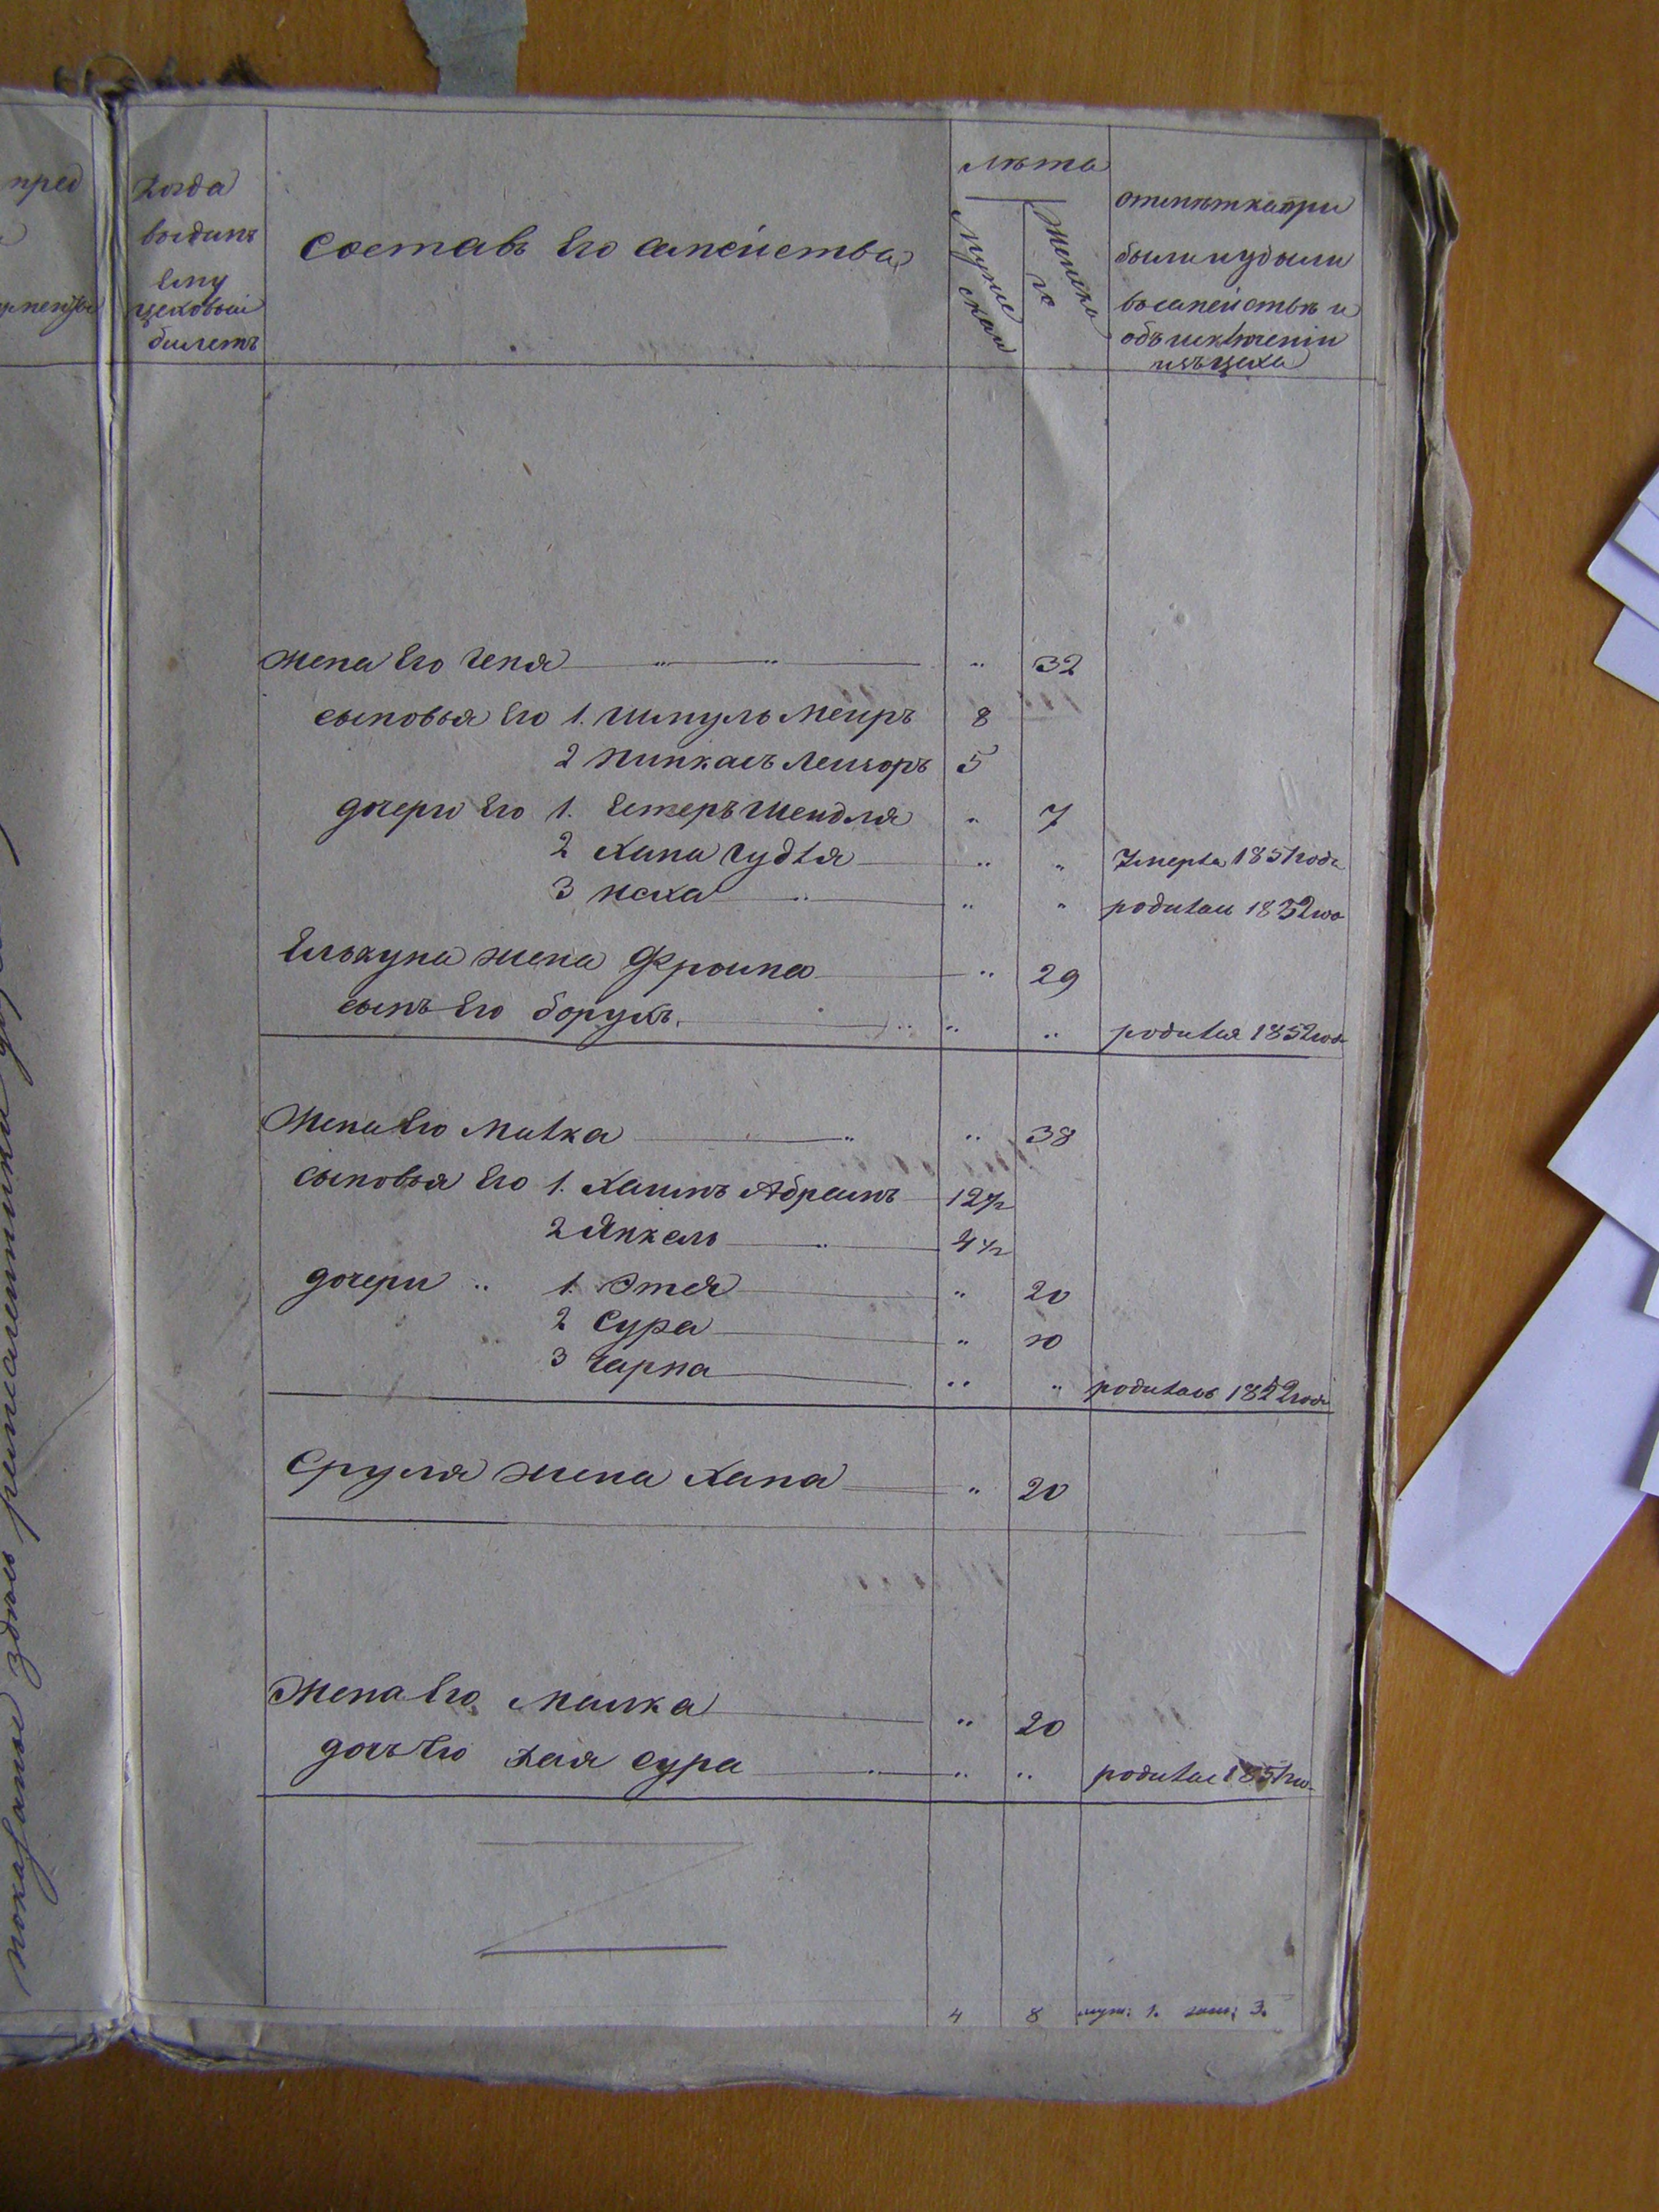 пред
Когда
выданъ
Ему
цеховый
билетъ
Составъ Его семейства
лѣта
Мужескаи
Женска
го
отмѣтка при
были и убыли
въ семействѣ и
объ исключеніи
изъ цеха
Жена Его Геня " " " 32
сыновья Его 1. Шмуль Меиръ 8
2 Пинкасъ Лейзоръ 5
дочери Его 1. Естеръ Шендля " 7
2 Хана Гудля " " Умерла 1851 года
3 Песха " " " родилась 1852 го
Елькуна жена Фроина " 29
сынъ Его Борухъ. " " " родился 1852 года
Жена Его Милка " " 38
сыновья Его 1. Хаимъ Абрамъ 12½
2 Янкель " 4½
дочери " 1. Этея " 20
2 Сура " 10
3 Чарна " " родилась 1852 года
Сруля жена Хана " 20
Жена Его Малка " 20
дочь Его Хая Сура " " " родилас 1851 го
4 8 муж: 1. жен: 3.
показаные здѣсь